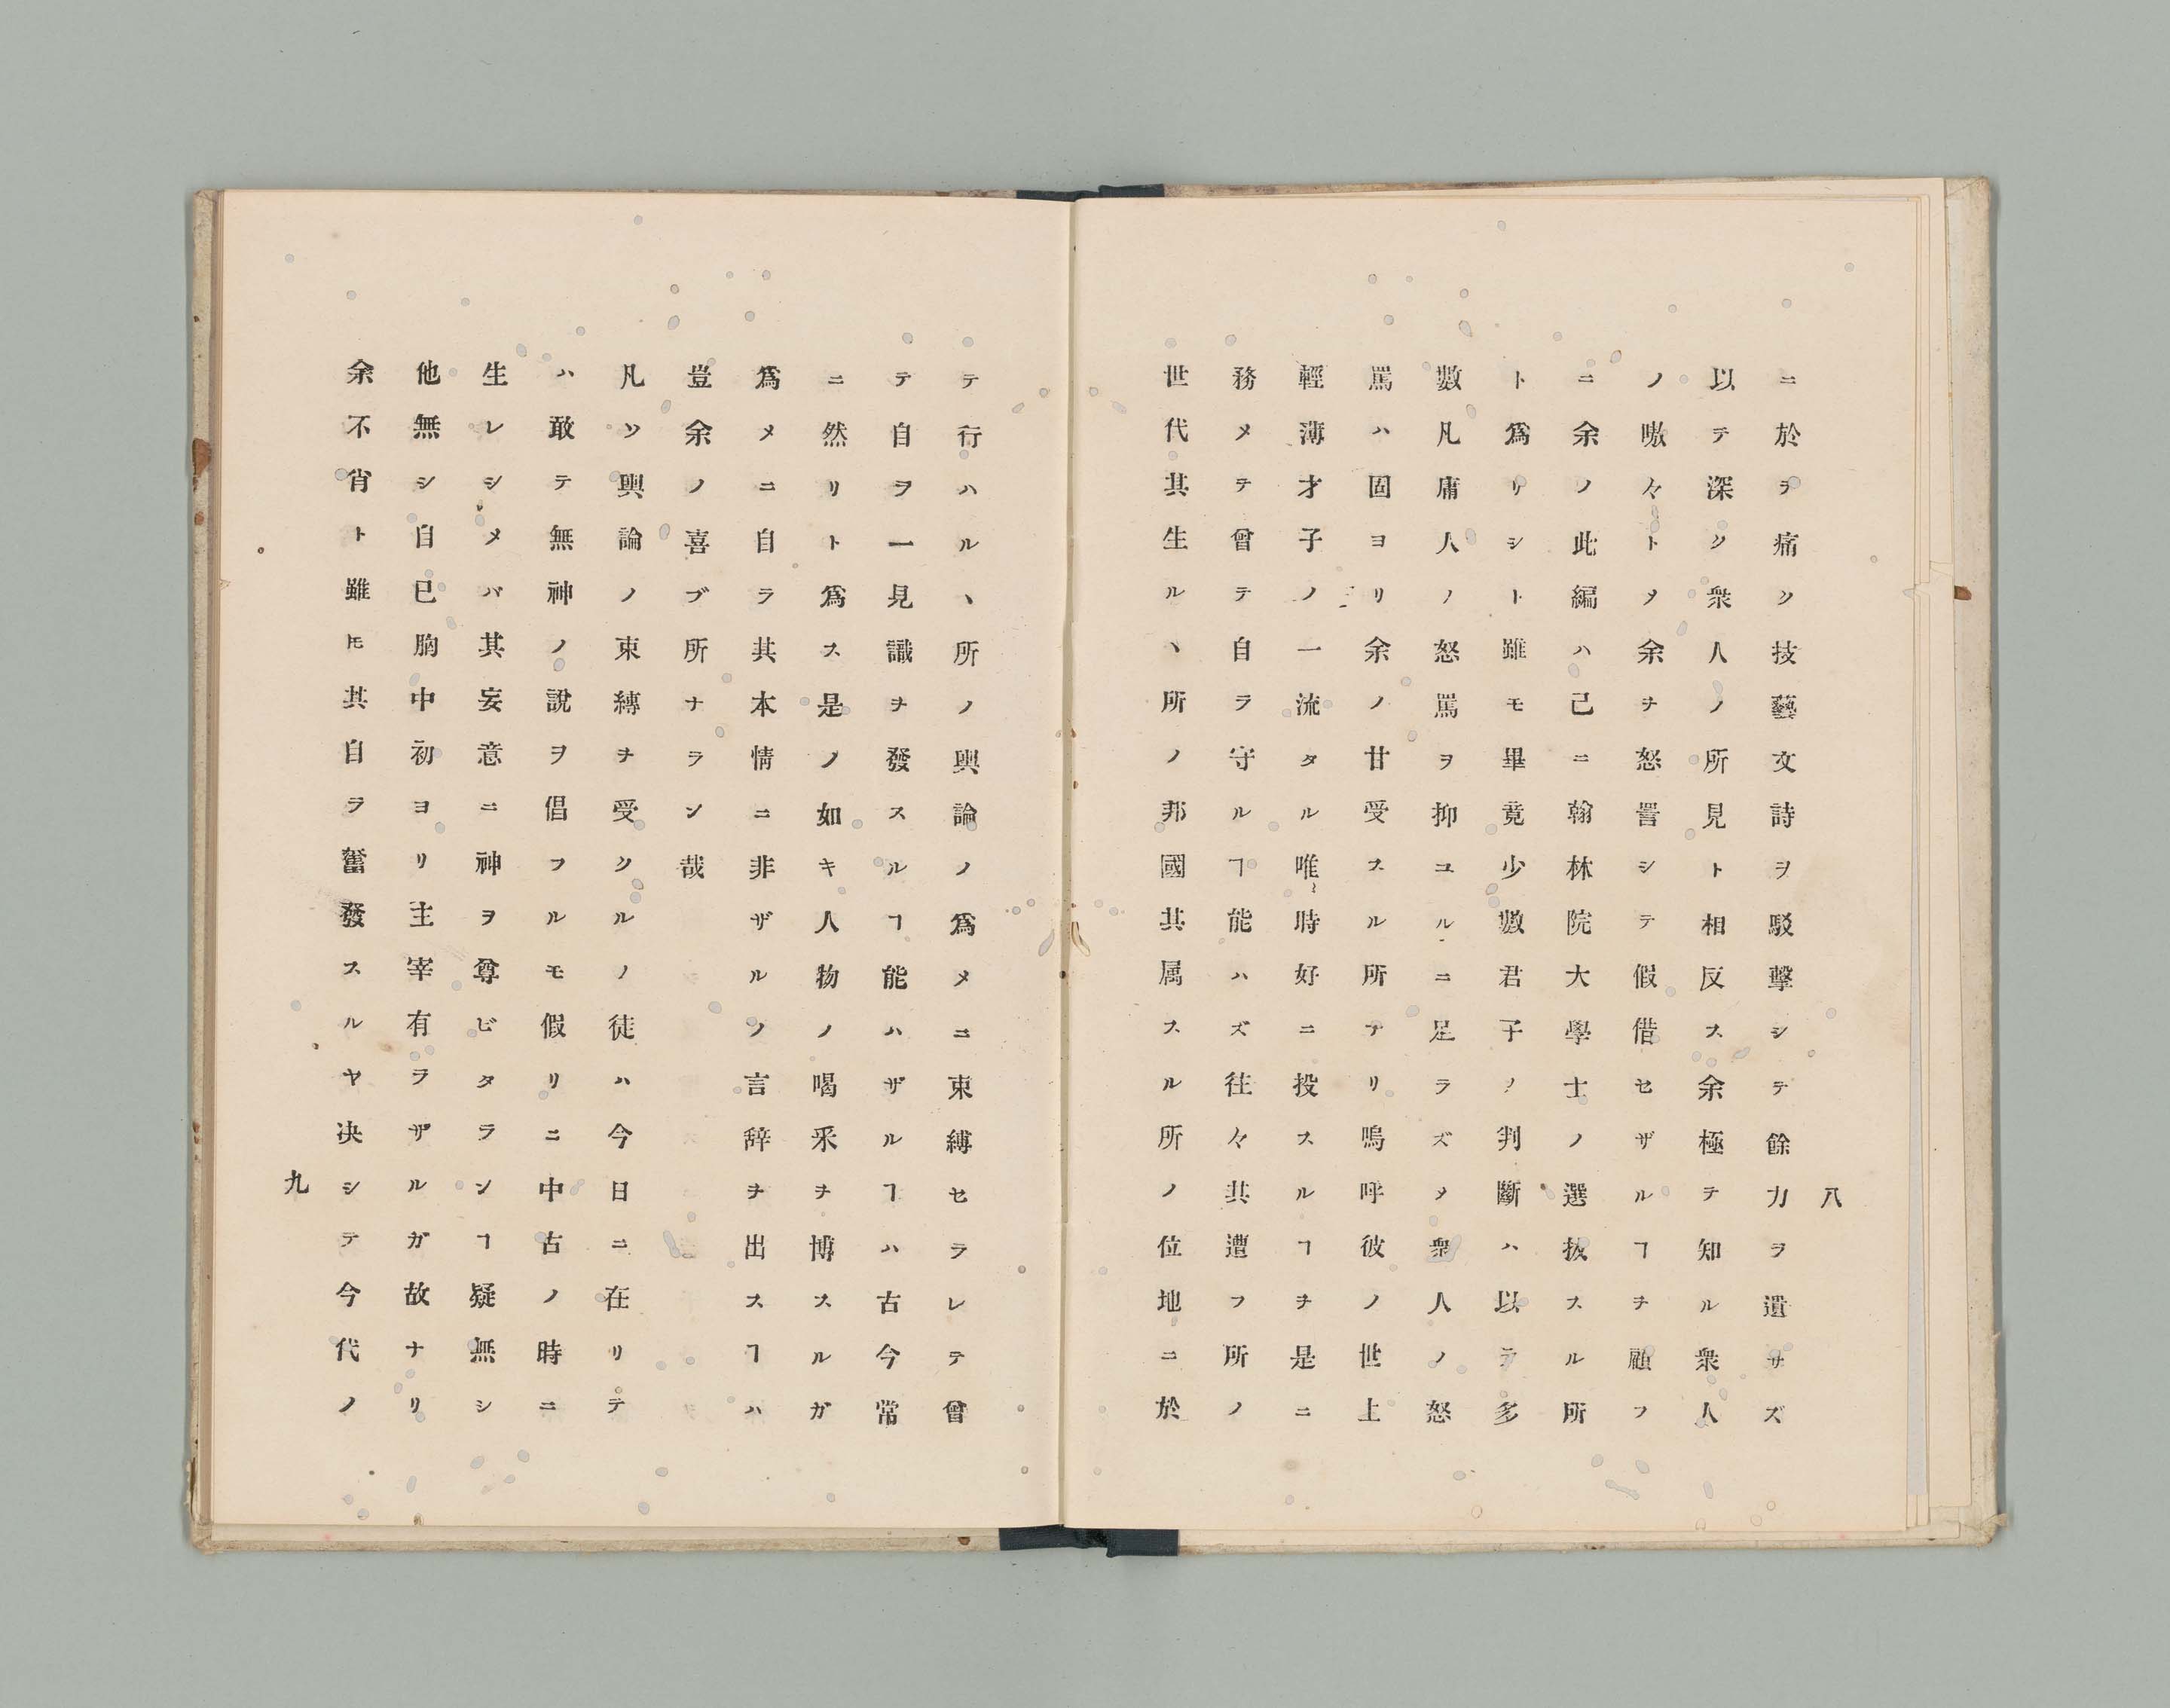 八
ニ於ヲ痛ク技藝文詩ヲ駁擊シテ餘力ヲ遺サズ
以テ深ク衆人ノ所見ト相反ス余極テ知ル衆人
ノ嗷々トヲ余ヲ怒詈シテ假借セザルヿヲ顧フ
ニ余ノ此編ハ己ニ翰林院大學士ノ選拔スル所
ト爲リシト雖モ畢竟少數君子ノ判斷ハ以テ多
數凡庸人ノ怒罵ヲ抑ユルニ足ラズメ衆人ノ怒
罵ハ固ヨリ余ノ甘受スル所ナリ嗚呼彼ノ世上
輕薄才子ノ一流タル唯時好ニ投スルヿヲ是ニ
務メテ曾テ自ラ守ルヿ能ハズ往々其遭フ所ノ
世代其生ルヽ所ノ邦國其属スル所ノ位地ニ於
テ行ハルヽ所ノ輿論ノ爲メニ束縛セラレテ曾
テ自ヲ一見識ヲ發スルヿ能ハザルヿハ古今常
ニ然リト爲ス是ノ如キ人物ノ喝采ヲ博スルガ
爲メニ自ラ其本情ニ非ザルノ言辞ヲ出スヿハ
豈余ノ喜ブ所ナランヤ哉
凡ソ輿論ノ束縛ヲ受クルノ徒ハ今日ニ在リテ
ハ敢テ無神ノ說ヲ倡フルモ假リニ中古ノ時ニ
生レシメバ其妄意ニ神ヲ尊ビタランヿ疑無シ
他無シ自已胸中初ヨリ主宰有ラザルガ故ナリ
余不肖ト雖𪜈其自ラ奮發スルヤ决シテ今代ノ
九